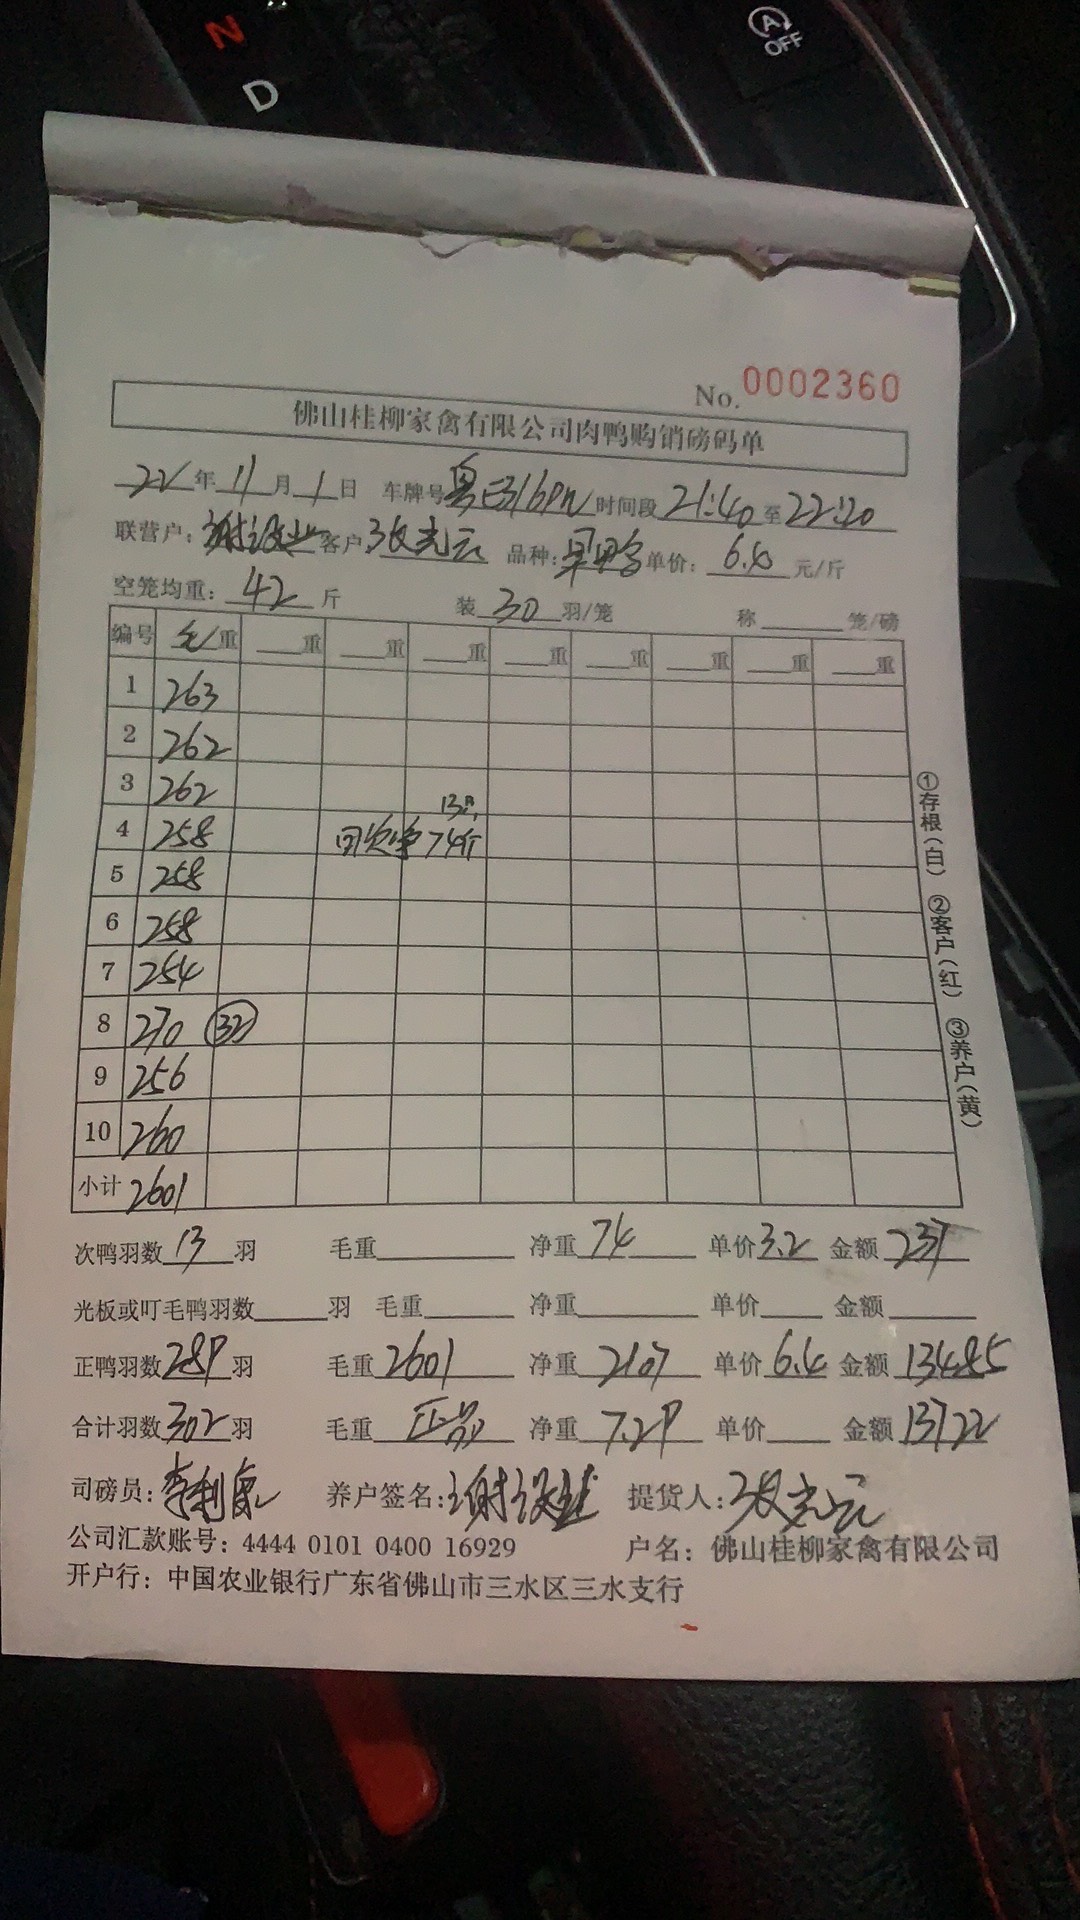 N
D
A
OFF
No. 0002360
佛山桂柳家禽有限公司肉鸭购销磅码单
22年11月1日 车牌号 时间段21:40至22:20
联营户: 客户:张光云 品种: 单价:6.4元/斤
空笼均重:42斤 装30羽/笼 称 笼/磅
编号 毛重 重 重 重 重 重 重 重 重
1 263
2 262
3 262
13只
4 258 回次净74斤
5 258
6 258
7 254
8 270 32
9 256
10 260
小计 2601
①存根(白) ②客户(红) ③养户(黄)
次鸭羽数13羽 毛重 净重74 单价3.2 金额237
光板或叮毛鸭羽数 羽 毛重 净重 单价 金额
正鸭羽数289羽 毛重2601 净重2107 单价6.4 金额13485
合计羽数302羽 毛重正品 净重7.29 单价 金额13722
司磅员: 养户签名: 提货人:张光云
公司汇款账号:4444 0101 0400 16929 户名:佛山桂柳家禽有限公司
开户行:中国农业银行广东省佛山市三水区三水支行